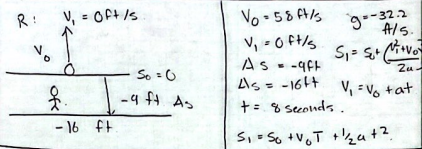 R: V₁ = 0ft/s
V₀
S₀ = 0
-9 ft Δs
-16 ft
V₀ = 58ft/s
g = -32.2
ft/s.
V₁ = 0 ft/s
Δs = -9ft
Δs = -16ft
t = .8 seconds.
S₁ = S₀ + (V₁+V₀
2a
V₁ = V₀ + at
S₁ = S₀ + V₀T + 1/2a + 2.